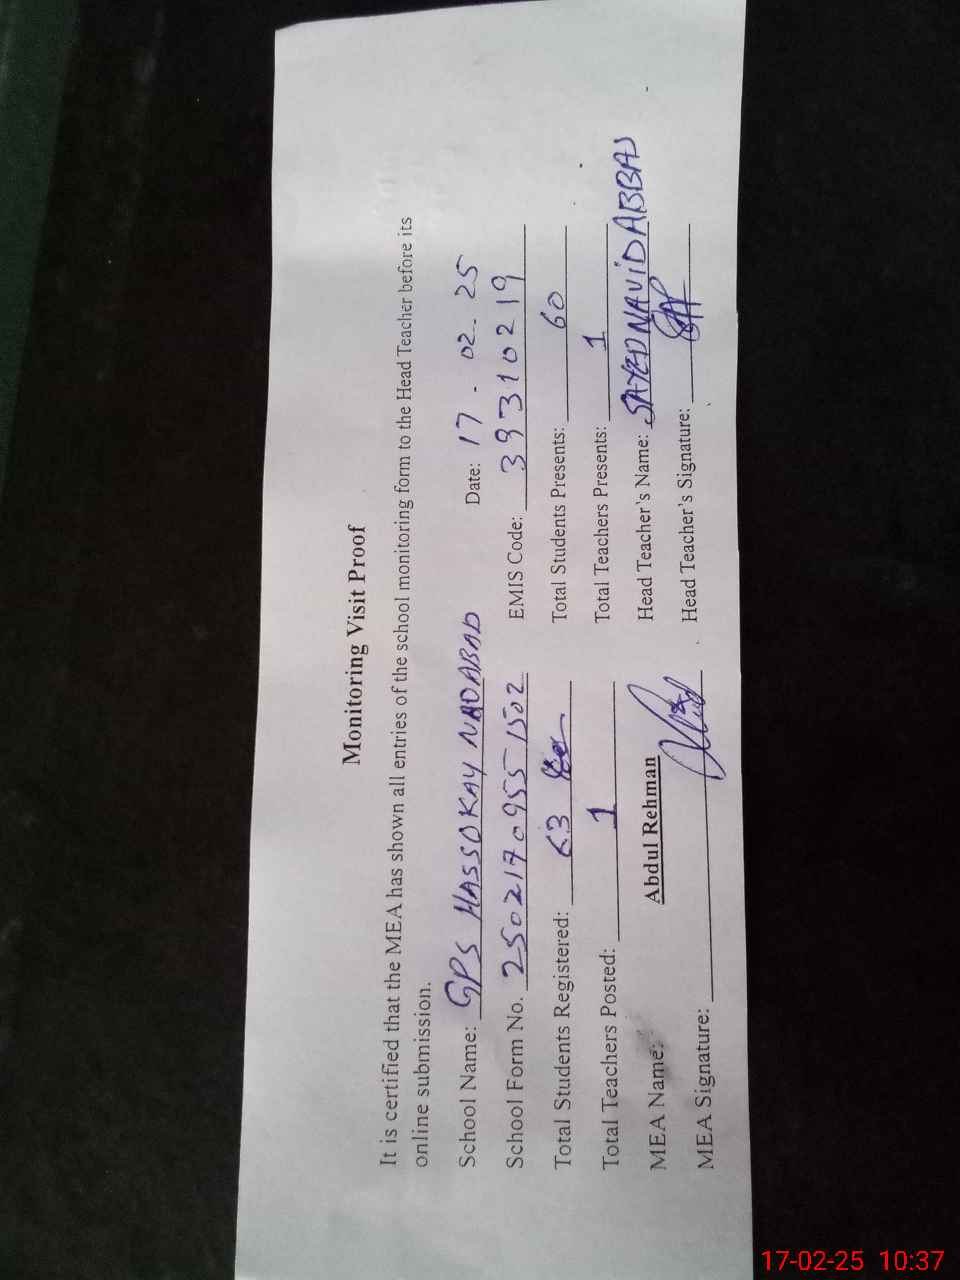 Monitoring Visit Proof
It is certified that the MEA has shown all entries of the school monitoring form to the Head Teacher before its
online submission.
School Name: GPS HASSOKAY NADABAD Date: 17 - 02 - 25
School Form No. 25021709551502 EMIS Code: 39310219
Total Students Registered: 63 Total Students Presents: 60
Total Teachers Posted: 1 Total Teachers Presents: 1
MEA Name: Abdul Rehman Head Teacher's Name: SAYED NAVID ABBAS
MEA Signature: Head Teacher's Signature:
17-02-25 10:37